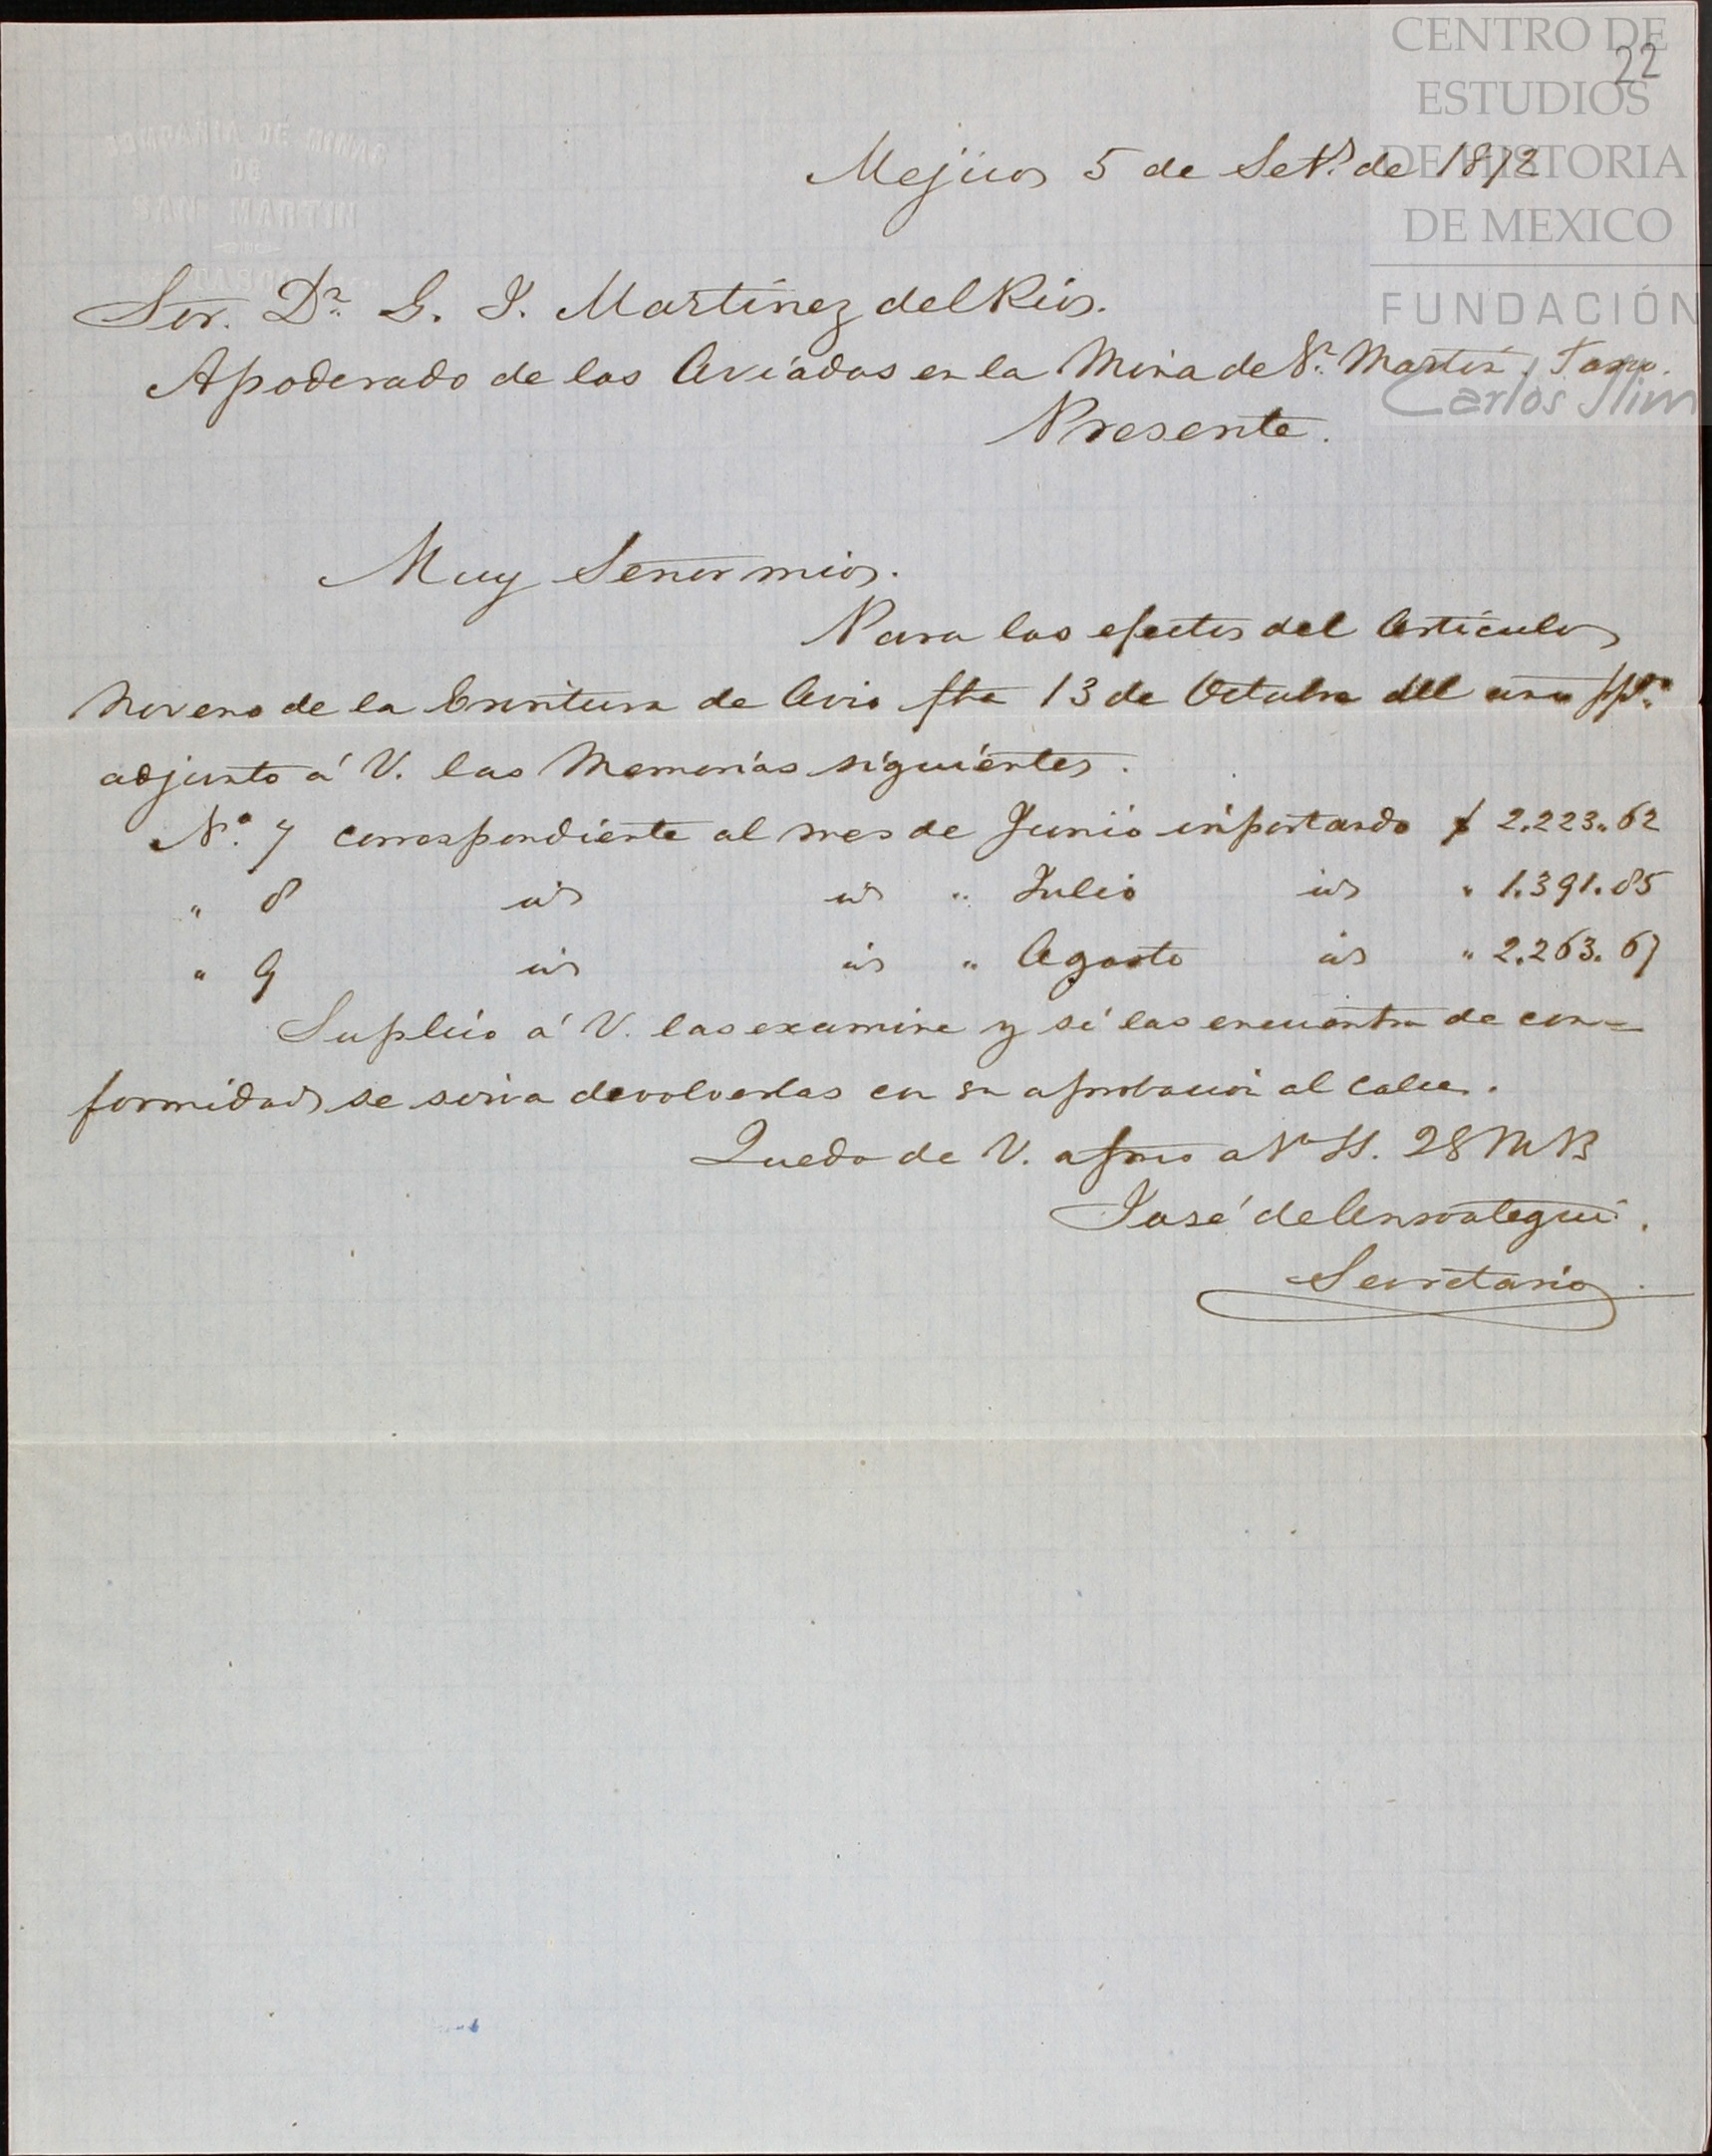 CENTRO DE
ESTUDIOS
DE HISTORIA
DE MEXICO
FUNDACIÓN
Carlos Slim
22
COMPAÑIA DE MINAS
DE
SAN MARTIN
Mejico 5 de Set.e de 1872
Sor. Dn. G. I. Martinez del Rio.
Apoderado de los Aviados en la Mina de Sn. Martin. Taxco.
Presente.
Muy Señor mio.
Para los efectos del Articulo
Noveno de la Escritura de Avio fha 13 de Octubre del año ppdo.
adjunto á V. las Memorias siguientes.
No. 7 correspondiente al mes de Junio importando $ 2.223.62
" 8 id id " Julio id " 1.391.85
" 9 id id " Agosto id " 2.263.67
Suplico á V. las examine y si las encuentra de con=
formidad se sirva devolverlas con su aprobacion al calce.
Quedo de V. afmo a SS. Q B S M
José de Ansoategui.
Secretario